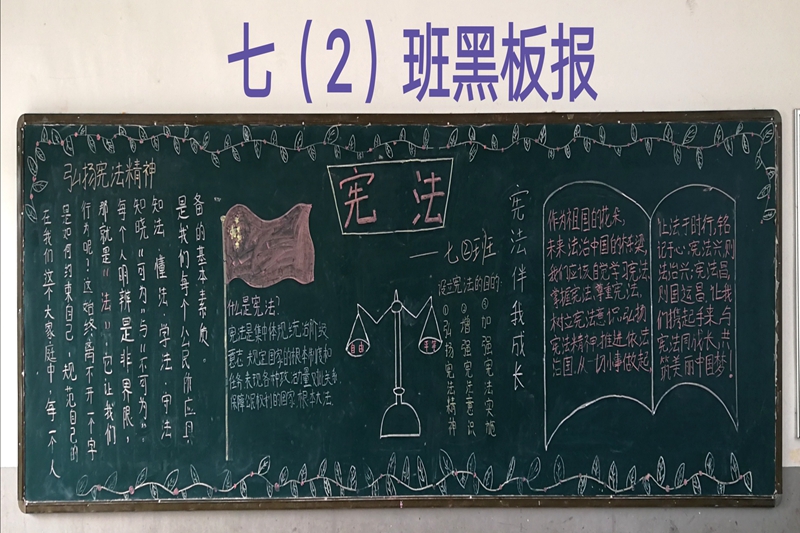 七（2）班黑板报
弘扬宪法精神
在我们这个大家庭中,每一个人
是如何约束自己,规范自己的
行为呢?这始终离不开一个字
那就是“法”它让我们
每个人明辨是非界限,
知晓“可为”与“不可为”
知法、懂法、学法、守法
是我们每个公民所应具
备的基本素质。
宪法
——七②班
什么是宪法?
宪法是集中体现统治阶级
意志,规定国家的根本制度和
任务,表现各种政治力量对比关系,
保障公民权利的国家根本大法.
自由
平等
设立宪法的目的:
①弘扬宪法精神
增强宪法意识
加强宪法实施
宪法伴我成长
作为祖国的花朵,
未来法治中国的栋梁
我们应该自觉学习宪法,
掌握宪法,尊重宪法,
树立宪法意识,弘扬
宪法精神,推进依法
治国,从一切小事做起,
让法于时行,铭
记于心,宪法兴则
法治兴;宪法昌
则国运昌,让我
们携起手来,与
宪法同成长,共
筑美丽中国梦!